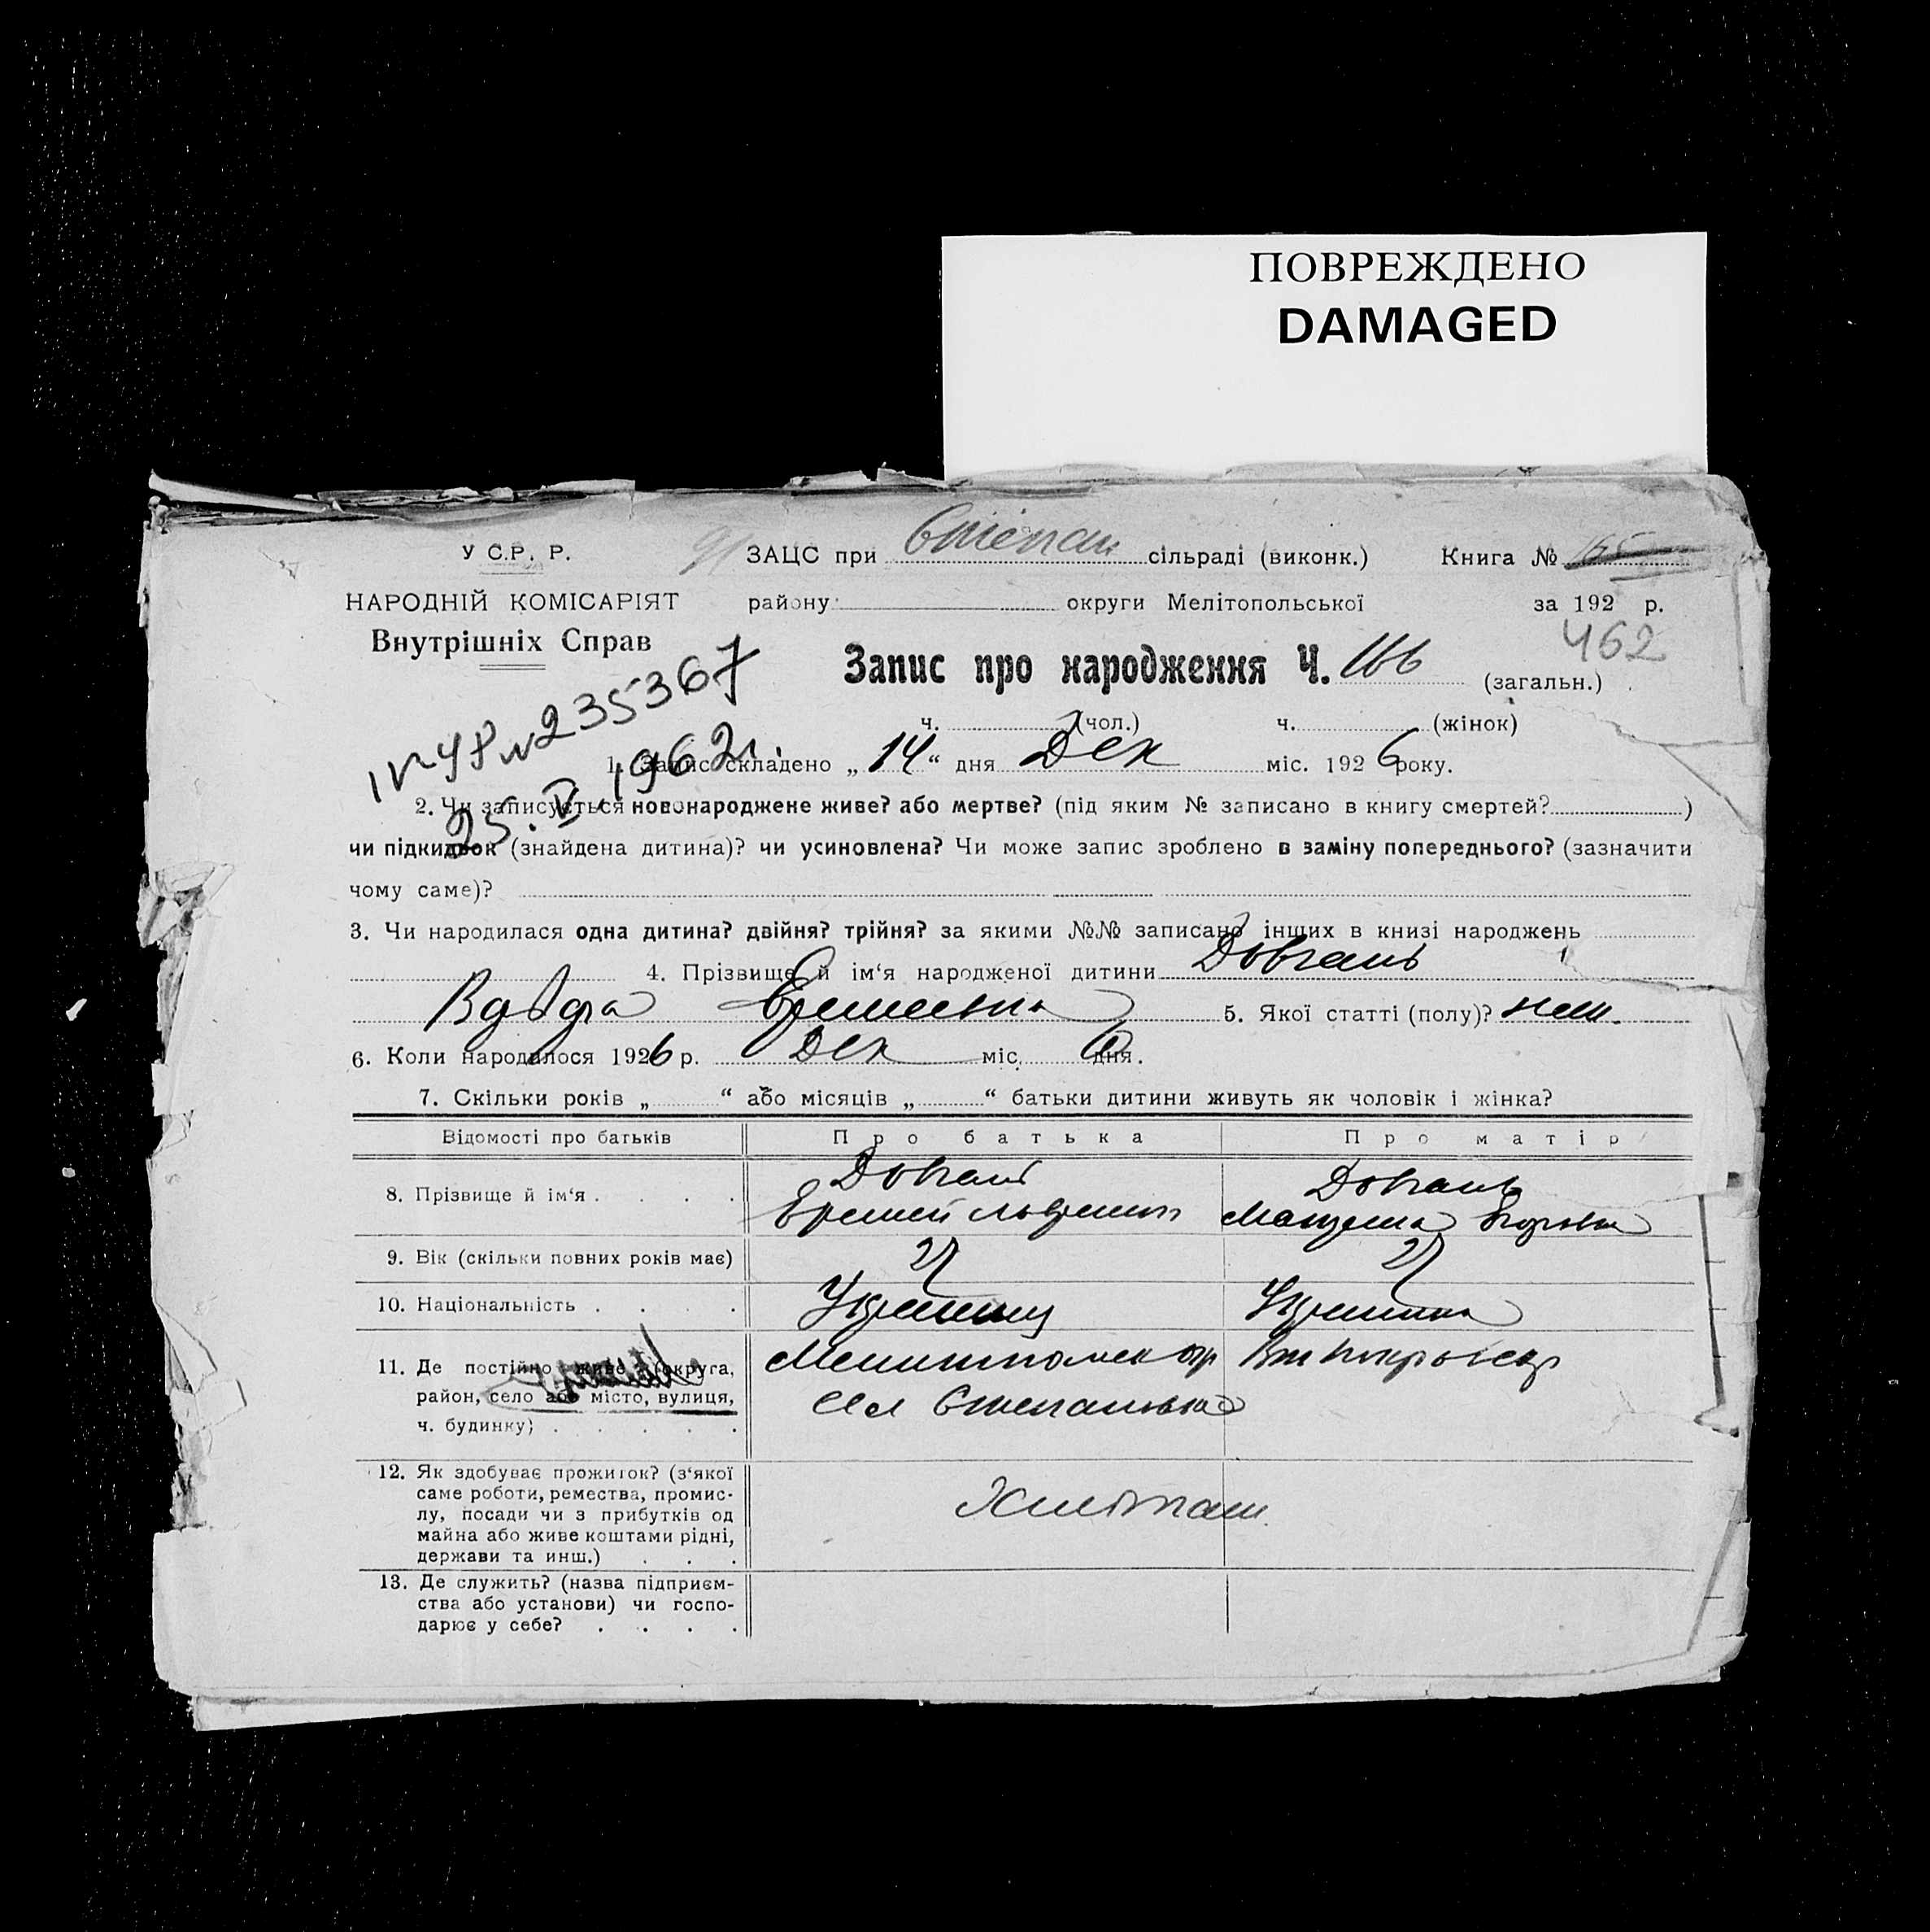 ПОВРЕЖДЕНО
DAMAGED
У С.Р. Р. ЗАЦС при Степан сільраді (виконк.) Книга №
НАРОДНІЙ КОМІСАРІЯТ району округи Мелітопольської за 192 р.
Внутрішніх Справ 462
Запис про народження Ч. 166 (загальн.)
235367
ч. (чол.) ч. (жінок)
25. V 1962г.
1. Запис складено „ 14 “ дня Дек міс. 1926 року.
2. Чи записується новонароджене живе? або мертве? (під яким № записано в книгу смертей? )
чи підкидьок (знайдена дитина)? чи усиновлена? Чи може запис зроблено в заміну попереднього? (зазначити
чому саме)?
3. Чи народилася одна дитина? двійня? трійня? за якими №№ записано інших в книзі народжень
4. Прізвище й ім‘я народженої дитини Довгань
5. Якої статті (полу)?
6. Коли народилося 1926 р. Дек міс. 6 дня.
7. Скільки років „ “ або місяців „ “ батьки дитини живуть як чоловік і жінка?
Відомості про батьків Про батька Про матір
8. Прізвище й ім‘я . . . . Довгань Довгань
Еремей
9. Вік (скільки повних років має) 27 27
10. Національність . . . . Украинец Украинка
11. Де постійно живе? (округа,
район, село або місто, вулиця,
ч. будинку) . . . . . Степановка
12. Як здобуває прожиток? (з‘якої
саме роботи, ремества, промис-
лу, посади чи з прибутків од
майна або живе коштами рідні,
держави та инш.) . . . Хлебопаш.
13. Де служить? (назва підприєм-
ства або установи) чи госпо-
дарює у себе? . . . .